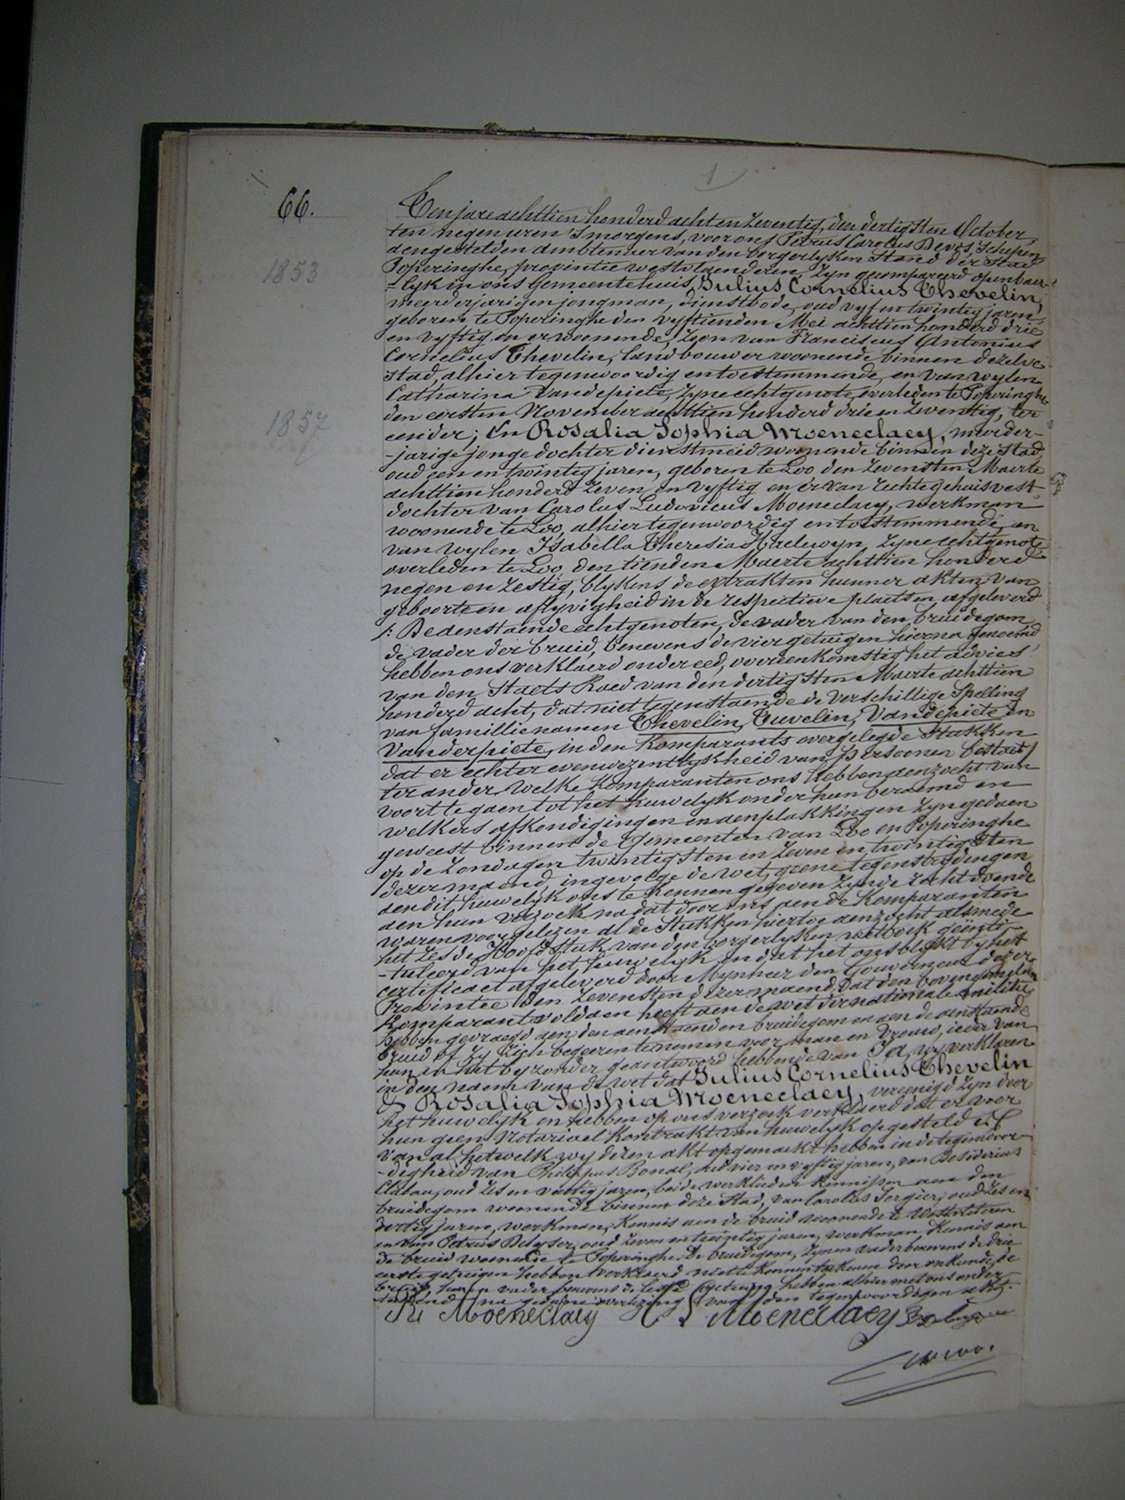 1
66.
1853
1857
Ten jare achttien honderd achtenzeventig, den dertigsten October
ten negen uren 's morgens, voor ons Petrus Carolus Devos Schepen
aengestelden ambtenaer van den borgerlyken Stand der stad
Poperinghe, provintie westvlaenderen, zyn gecompareerd openbaer-
-lyk in ons Gemeentehuis, Julius Cornelius Thevelin,
meerderjarigen jongman, dienstbode, oud vyf en twintig jaren,
geboren te Poperinghe den vyftienden Mei achttien honderd drie
en vyftig en er woonende, zoon van Franciscus Antonius
Cornelius Thevelin, landbouwer woonende binnen dezelve
stad, alhier tegenwoordig en toestemmende, en van wylen
Catharina Vandepiete, zyne echtgenote, overleden te Poperinghe
den eersten November achttien honderd drie en zeventig, ter
eender; En Rosalia Sophia Moeneclaey, meerder-
-jarige jonge dochter dienstmeid woonende binnen deze stad,
oud een en twintig jaren, geboren te Loo den zevensten Maerte
achttien honderd zeven en vyftig en er van rechte gehuisvest
dochter van Carolus Ludovicus Moeneclaey, werkman
woonende te Loo, alhier tegenwoordig en toestemmende, en
van wylen Isabella Theresia Haelewyn, zyne echtgenote
overleden te Loo, den tienden Maerte achttien honderd
negen en zestig, blykens de extrakten hunner akten van
geboorte en aflyvigheid in de respective plaetsen afgeleverd
/: Bedenstaende echtgenoten, de vader van den bruidegom
de vader der bruid, benevens de vier getuigen hierna genoemd
hebben ons verklaerd onder eed, overeenkomstig het advies
van den Staets Raed van den dertigsten Maerte achttien
honderd acht, dat niettegenstaende de verschillige spelling
van famillienamen Thevelin, Tuvelin, Vandepiete en
Vanderpiete, in den komparants overgelegde stukken
dat er echter evenwezentlykheid van persoonen bestaet/
ter ander, welke komparanten ons hebben aenzocht van
voort te gaen tot het huwelyk onder hun beraemd en
welkers afkondigingen en aenplakkingen zyn gedaen
geweest binnen de Gemeenten van Loo en Poperinghe
op de zondagen twintigsten en zeven en twintigsten
dezer maend, ingevolge de wet, geene tegenstrydingen
aen dit huwelyk ons te kennen gegeven zynde recht doende
aen hun verzoek nadat door ons aen de komparanten
waren voorgelezen al de stukken hiertoe aenzocht alsmede
het zesde Hoofdstuk van den borgerlyken wetboek geinti-
-tuleerd van het huwelyk en dat het ons blykt by het
certificaet afgeleverd door Mynheer den Gouverneur dezer
Provintie den zevensten dezer maend, dat den bovengemelden
komparant voldaen heeft aen de wet der nationale militie
hebben gevraegd aen den aenstaenden bruidegom en aen de aenstaende
bruid of zy zich begeeren te nemen voor man en vrouw, ieder van
hun in het byzonder geantwoord hebbende van Ja, wy verklaren
in den naem van de wet dat Julius Cornelius Thevelin
& Rosalia Sophia Moeneclaey, vereenigd zyn door
het huwelyk en hebben op ons verzoek verklaerd dat er voor
hun geen Notariael kontrakt van huwelyk opgesteld is
van al hetwelk wy dezen akt opgemaekt hebben in de tegenwoor-
-digheid van Philippus Bonal, oud vier en vyftig jaren, van Desiderius
oud zes en veertig jaren, beide werklieden kennissen aen den
bruidegom woonende binnen deze stad, van Carolus Sergier, oud zes en
dertig jaren, werkman, kennis aen de bruid woonende te Westvleteren
en van Petrus Delgser, oud zeven en twintig jaren, werkman kennis aen
de bruid woonende te Poperinghe. De bruidegom, zynen vader benevens de drie
eerste getuigen hebben verklaerd niet te konnen teekenen door onkunde, de
bruid haren vader benevens de leste getuige hebben alhier met ons onder-
-teekend na gedane voorlezing van den tegenwoordigen akt.
R. Moeneclaey C L Moeneclaey